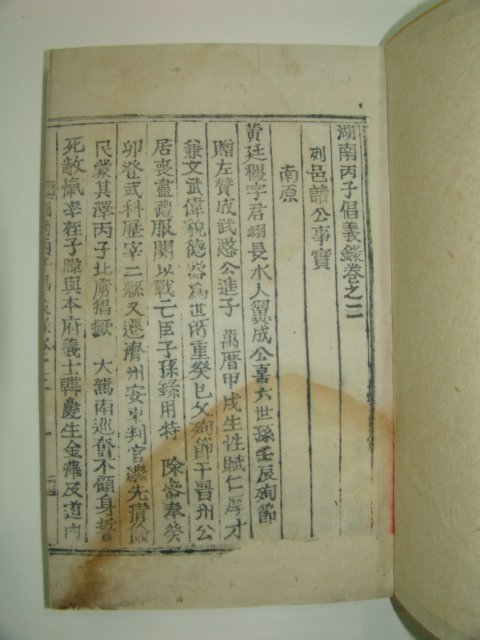 湖南丙子倡義錄卷之二
列邑諸公事實
南原
黃廷稷字君翊長水人翼成公喜六世孫壬辰殉節
贈左贊成武愍公進子 萬曆甲戌生性賦仁厚才
兼文武偉貌德器爲世所重癸巳父殉節于晋州公
居喪盡禮服闋以戰亡臣子孫錄用特 除參奉癸
卯登武科歷宰二縣又遷濟州安東判官繼先淸儉
民蒙其澤丙子北虜猖獗 大駕南巡奮不顧身誓
死敵愾率侄子暐與本府義士韓慶生金燁及道內